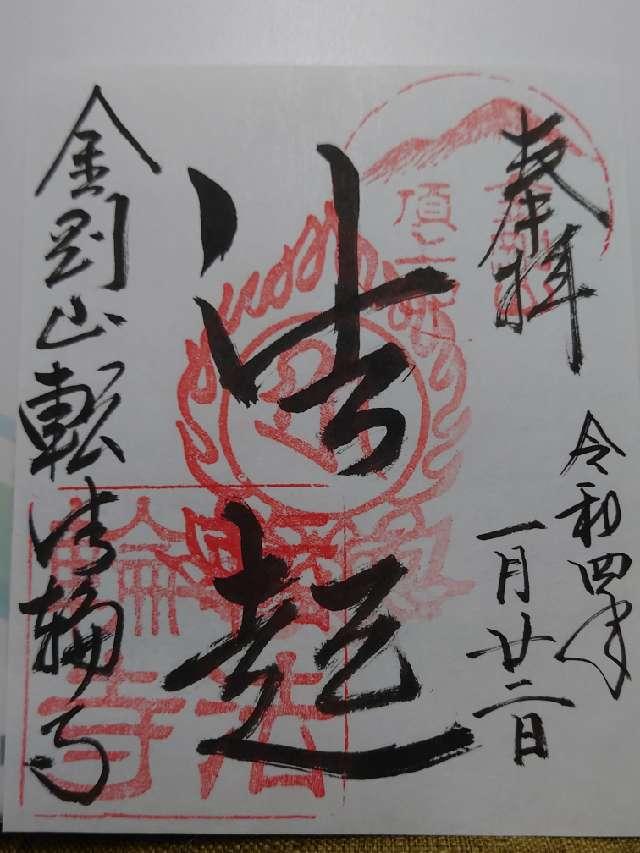 奉拝
令和四年
一月廿二日
頂上
法起
金剛山転法輪寺
輪
法
寺